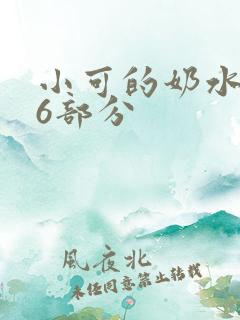 小可的奶水
6部分
風夜北
未经同意禁止转载